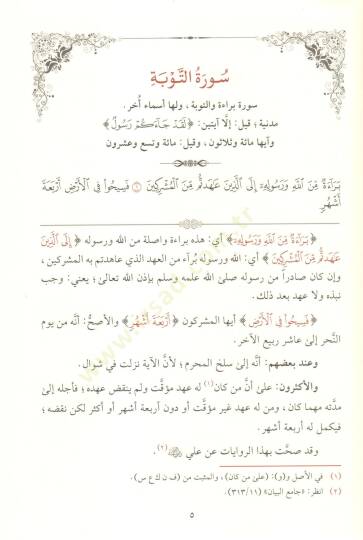 سُورَةُ التَّوْبَةِ
سورة براءة والتوبة ، ولها أسماء أُخر .
مدنية ؛ قيل: إلّا آيتين: ﴿لَقَدْ جَاءَكُمْ رَسُولٌ﴾
وآيها مائة وثلاثون، وقيل: مائة وتسع وعشرون
بَرَاءَةٌ مِّنَ اللَّهِ وَرَسُولِهِ إِلَى الَّذِينَ عَاهَدتُّم مِّنَ الْمُشْرِكِينَ ١ فَسِيحُوا فِي الْأَرْضِ أَرْبَعَةَ
أَشْهُرٍ
﴿بَرَاءَةٌ مِّنَ اللَّهِ وَرَسُولِهِ﴾ أي: هذه براءة واصلة من الله ورسوله ﴿إِلَى الَّذِينَ
عَاهَدتُّم مِّنَ الْمُشْرِكِينَ﴾ أي: الله ورسوله بُرآء من العهد الذي عاهدتم به المشركين،
وإن كان صادراً من رسوله صلى الله عليه وسلم بإذن الله تعالى؛ يعني: وجب
نبذه ولا عهد بعد ذلك.
﴿فَسِيحُوا فِي الْأَرْضِ﴾ أيها المشركون ﴿أَرْبَعَةَ أَشْهُرٍ﴾ والأصحُّ: أنَّه من يوم
النَّحر إلى عاشر ربيع الآخر.
وعند بعضهم: أنَّه إلى سلخ المحرم؛ لأنَّ الآية نزلت في شوال.
والأكثرون: على أنَّ من كان(١) له عهد مؤقَّت ولم ينقض عهده؛ فأجله إلى
مدَّته مهما كان، ومن له عهد غير مؤقَّت أو دون أربعة أشهر أو أكثر لكن نقضه؛
فيكمل له أربعة أشهر.
وقد صحَّت بهذا الروايات عن علي (٢).
(١) في الأصل و(و): (على من كان)، والمثبت من (ف ن ك ع س).
(٢) انظر: «جامع البيان» (٣١٣/١١)
٥